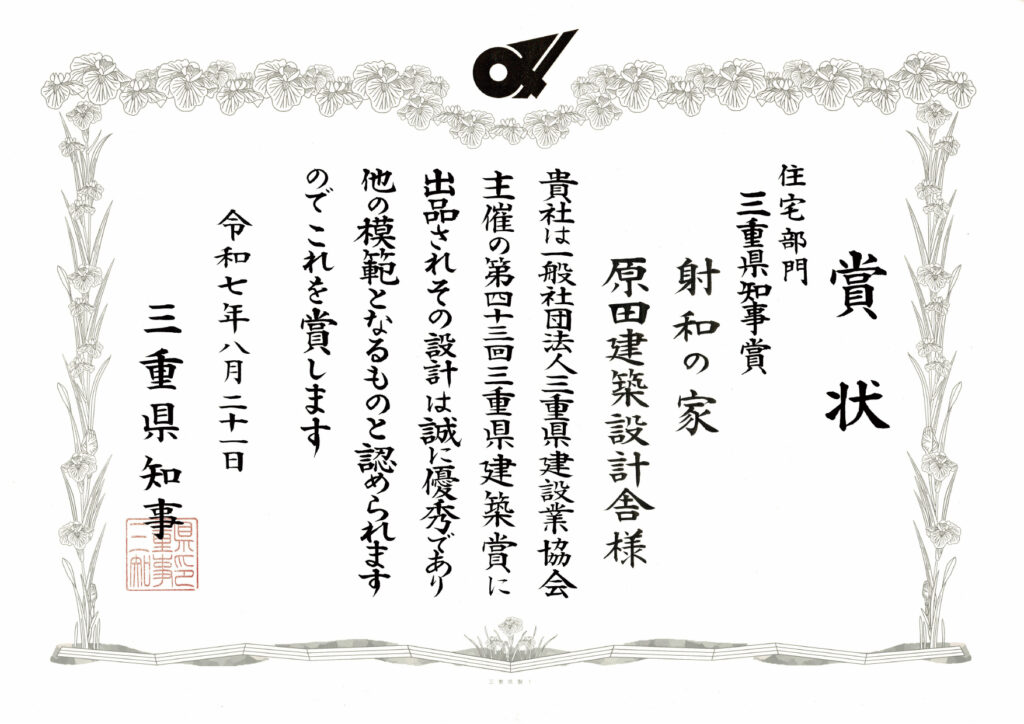 賞状
住宅部門
三重県知事賞
射和の家
原田建築設計舎様
貴社は一般社団法人三重県建設業協会
主催の第四十三回三重県建築賞に
出品されその設計は誠に優秀であり
他の模範となるものと認められます
のでこれを賞します
令和七年八月二十一日
三重県知事